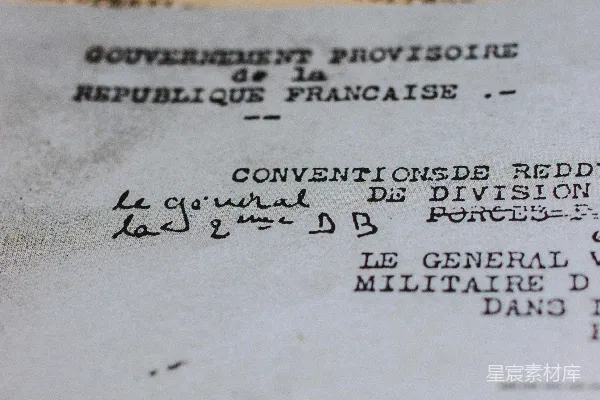 GOUVERNEMENT PROVISOIRE
de la
REPUBLIQUE FRANCAISE .-
--
CONVENTIONS DE REDD
le général DE DIVISION
la 2ème DB FORCES F
LE GENERAL V
MILITAIRE D
DANS
星宸素材库